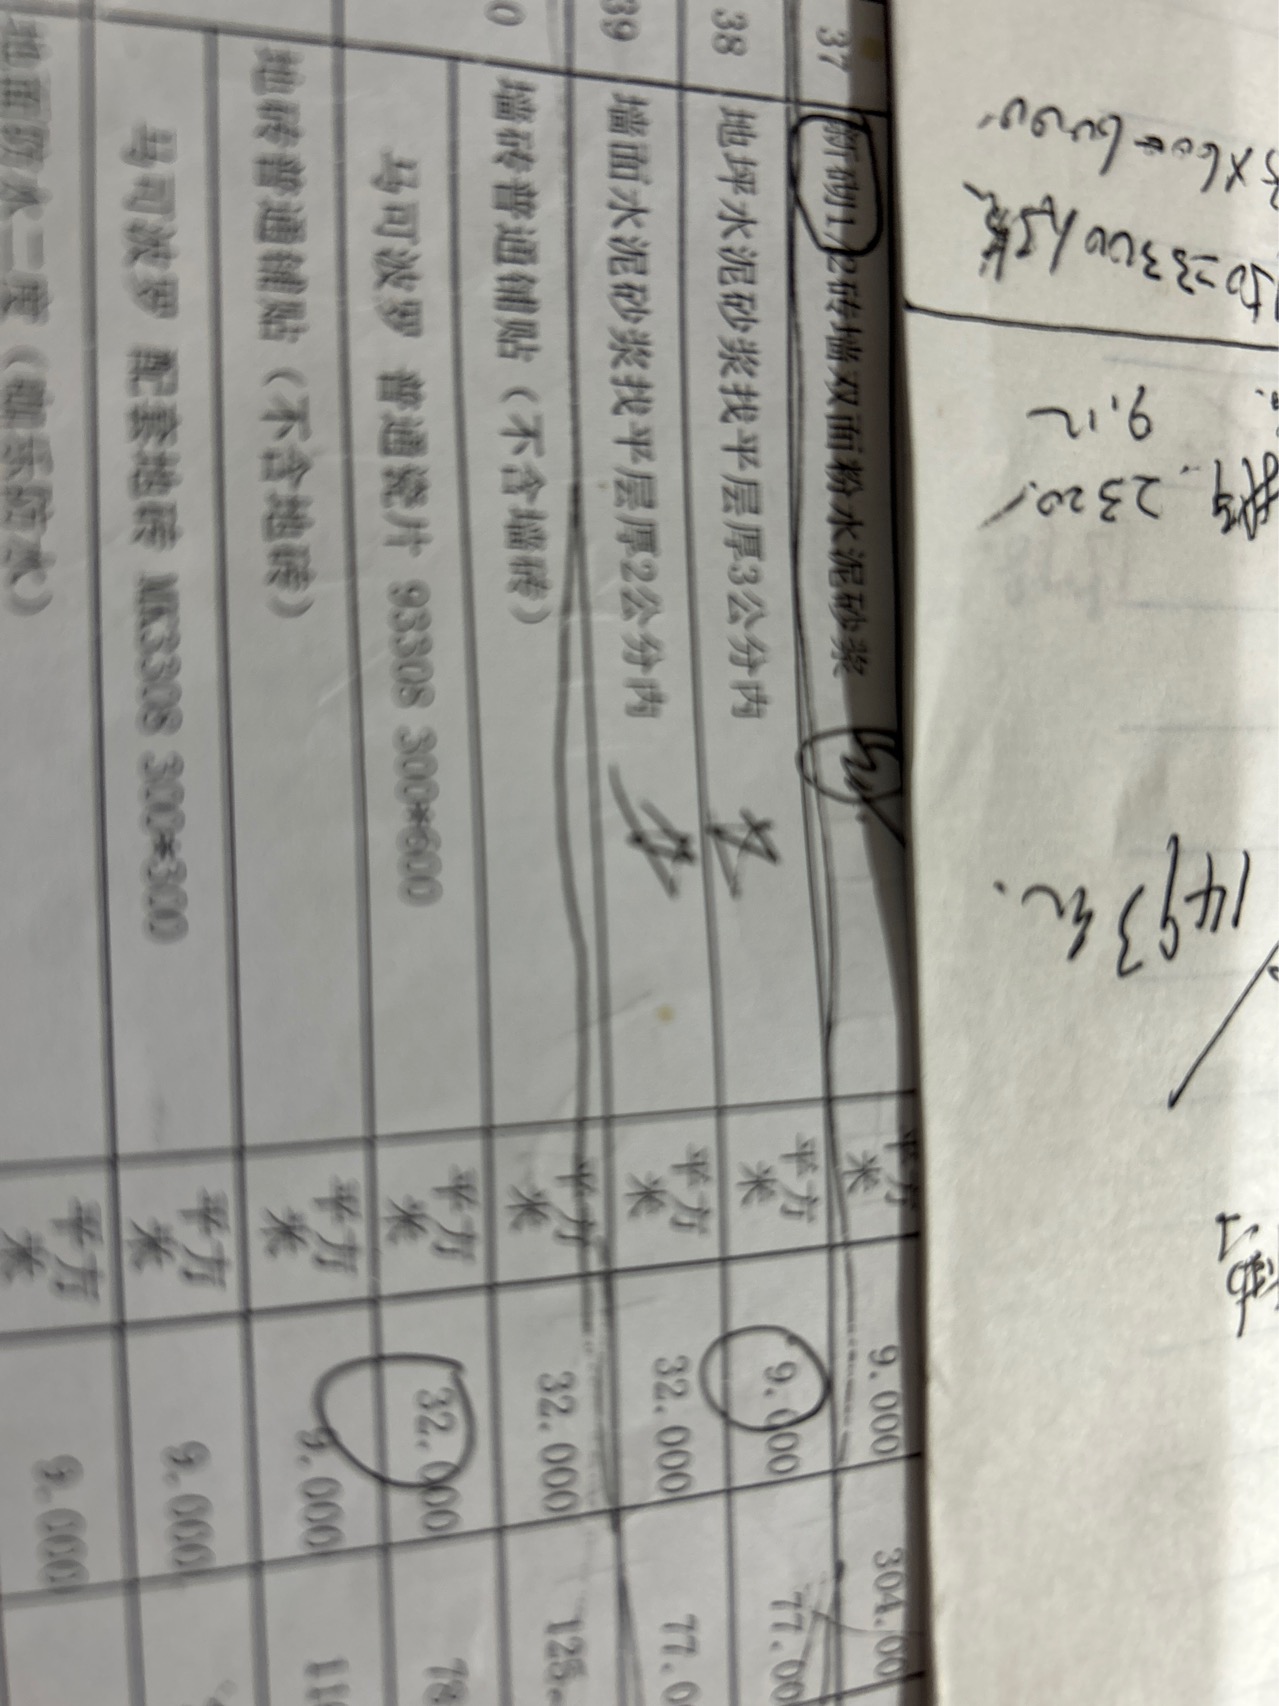 37 新砌1/2砖墙双面粉水泥砂浆 平方米 9.000 304.00
38 地坪水泥砂浆找平层厚3公分内 平方米 9.000 77.00
39 墙面水泥砂浆找平层厚2公分内 平方米 32.000 77.0
0 墙砖普通铺贴（不含墙砖） 平方米 32.000 125.
马可波罗 普通瓷片 93308 300*600 平方米 32.000 78
地砖普通铺贴（不含地砖） 平方米 9.000 11
马可波罗 配套地砖 MK3308 300*300 平方米 9.000
地面防水二度 平方米 9.000
×60=6000
50=3300
9.12
2320
1493